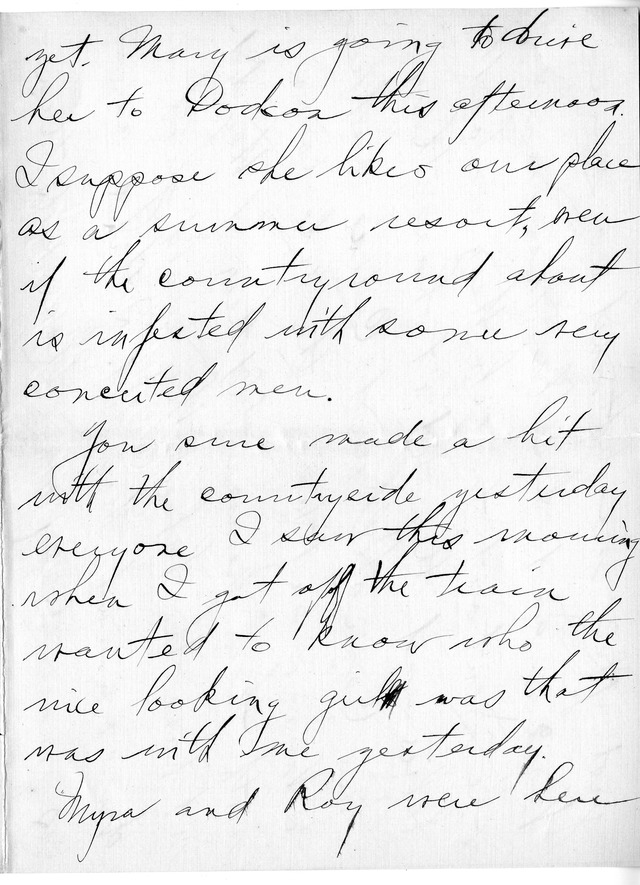 yet. Mary is going to drive
her to Dodson this afternoon.
I suppose she likes our place
as a summer resort, even
if the countryround about
is infested with some very
conceited men.
You sure made a hit
with the countryside yesterday
everyone I saw this morning
when I got off the train
wanted to know who the
nice looking girl was that
was with me yesterday.
Myra and Roy were here